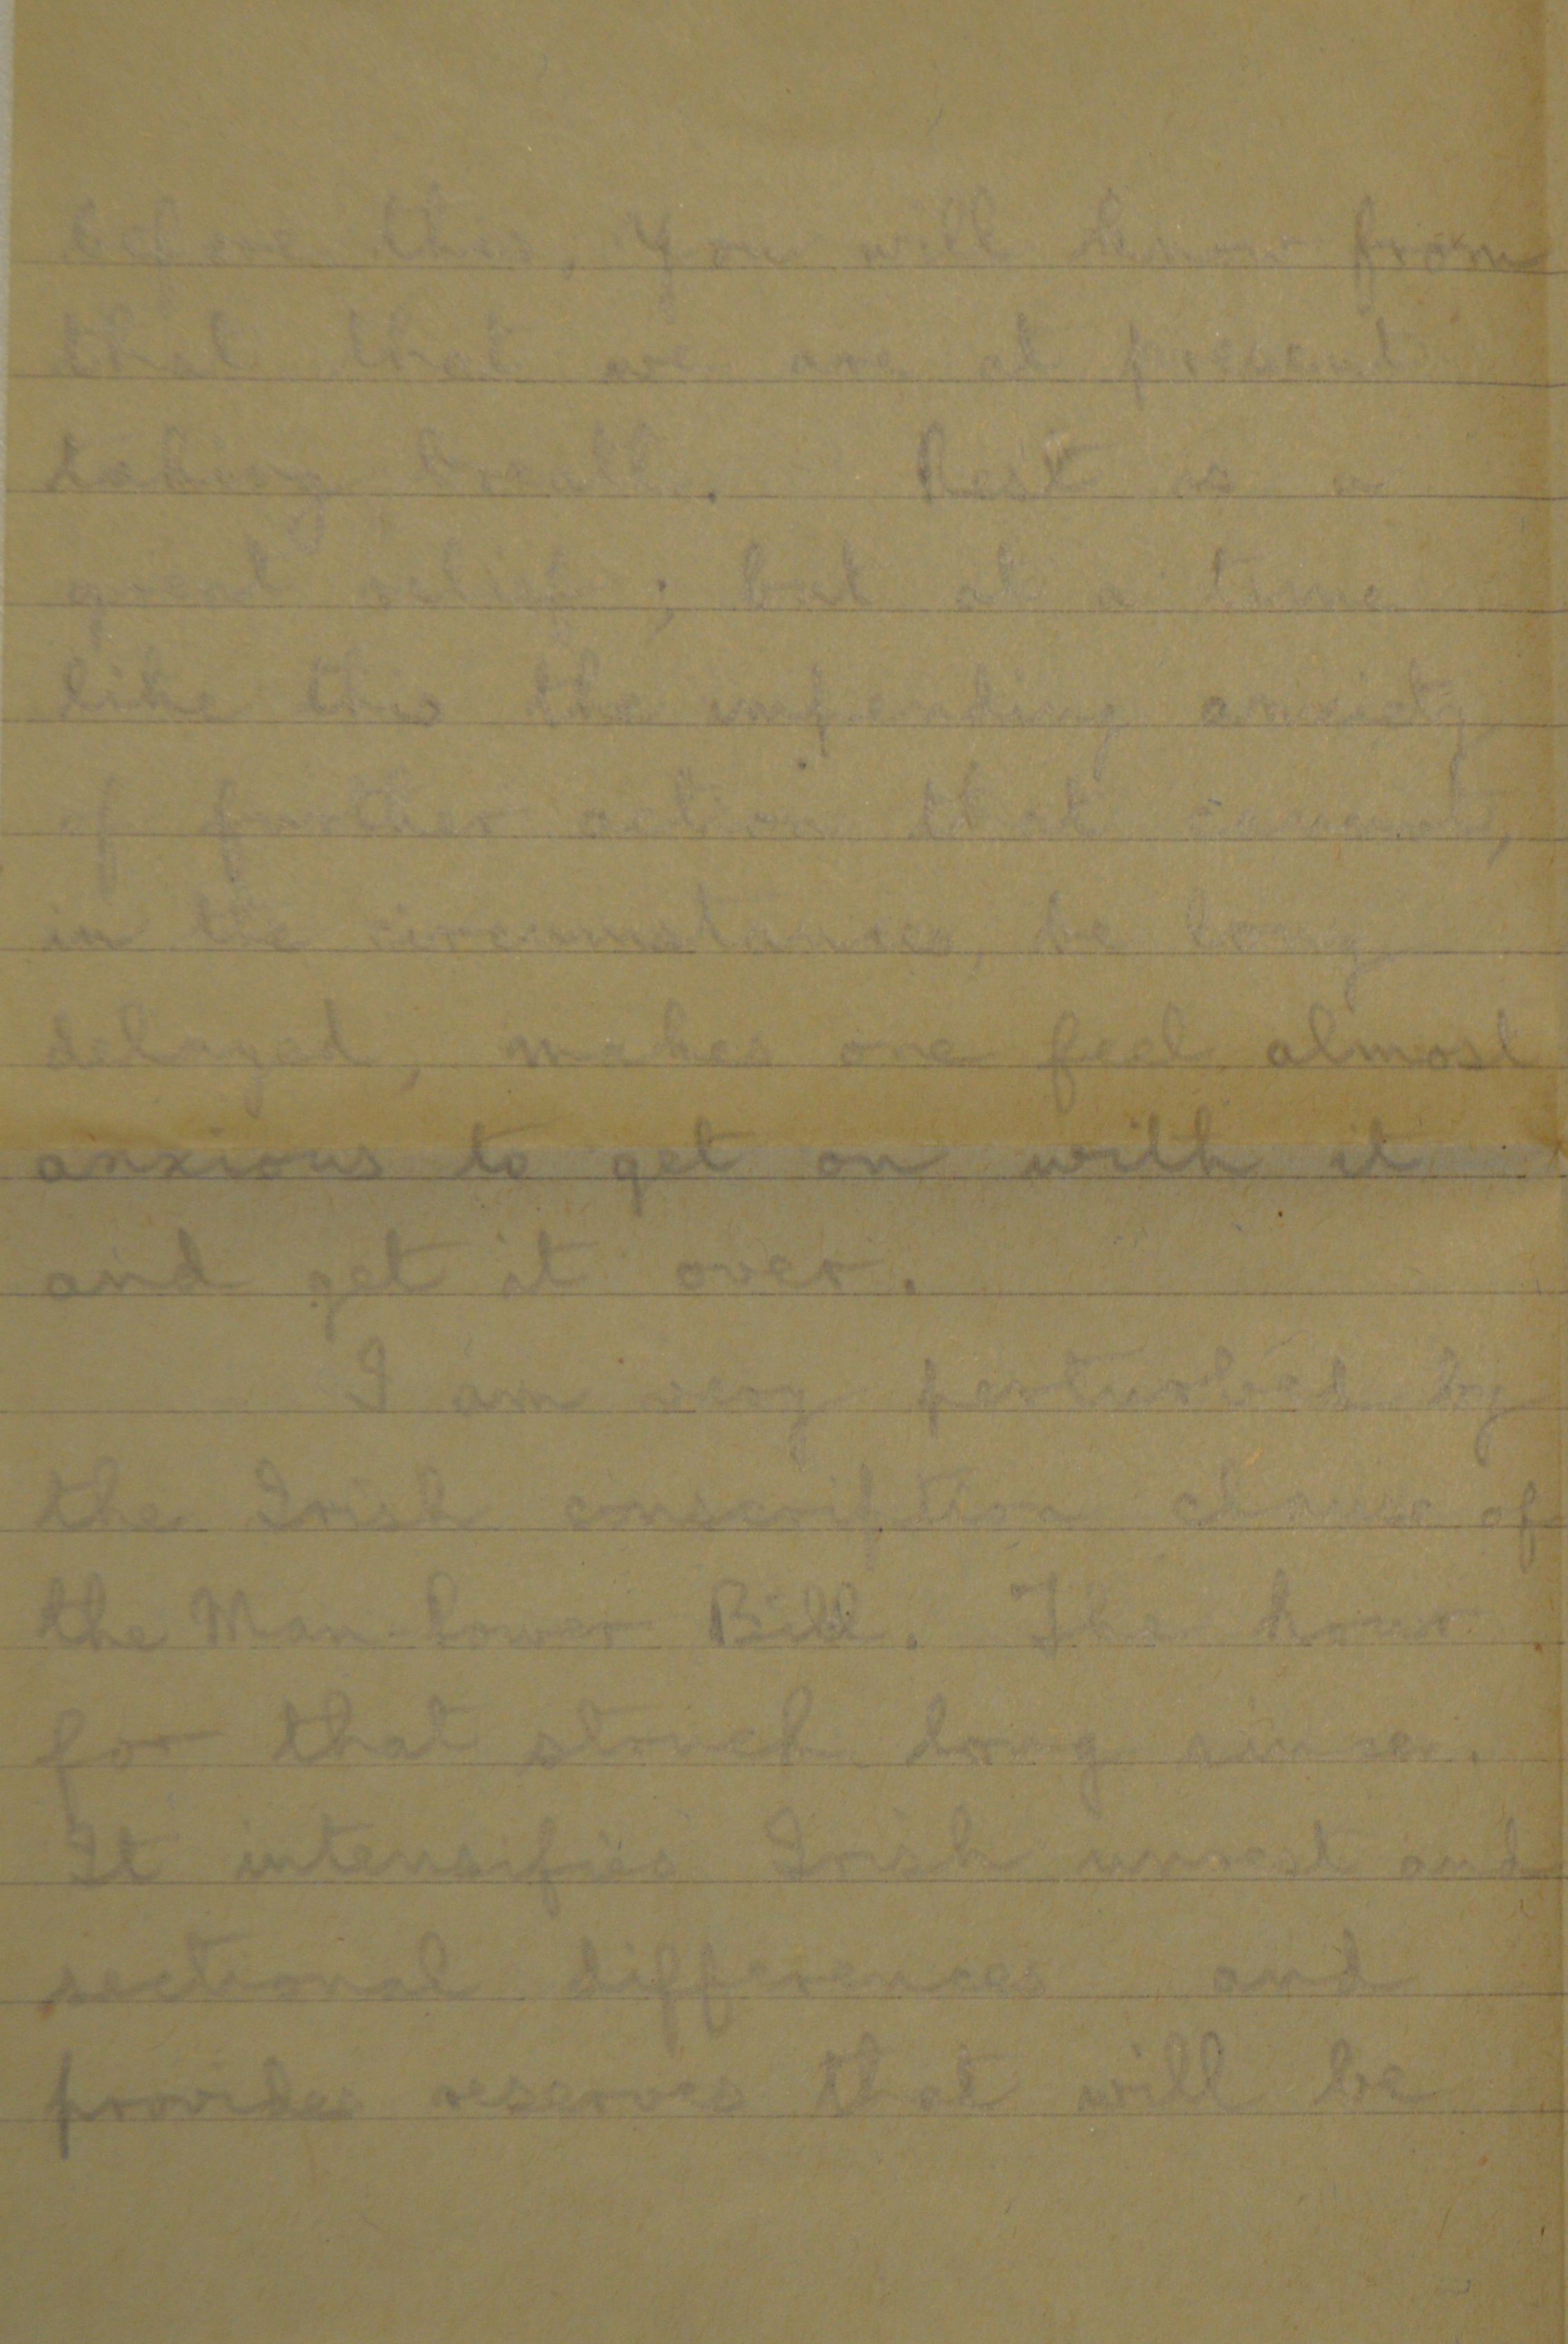 before this, you will know from
that that we are at present
taking breath. Rest is a
great relief; but at a time
like this the impending anxiety
of further action that cannot,
in the circumstances, be long
delayed, makes one feel almost
anxious to get on with it
and get it over.
I am very perturbed by
the Irish conscription clause of
the Man-Power Bill. The hour
for that struck long since.
It intensifies Irish unrest and
sectional differences and
provides reserves that will be